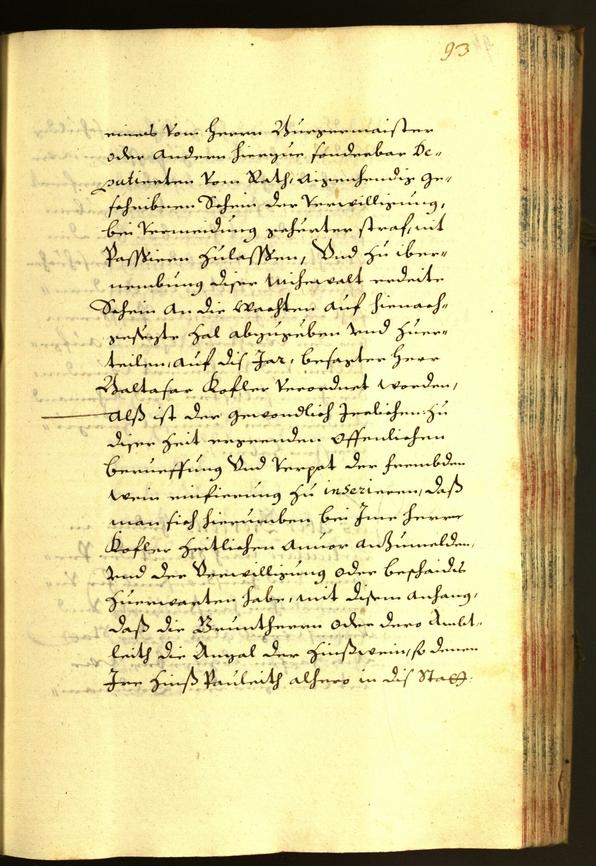 93
eines vom Herrn Burgermaister
oder andern hierzue sonderbar De-
putierten vom Rath, aigenhendig ge-
schribnen Schein der verwilligung,
bei vermeidung gehurter straf, nit
Passieren zulassen, Vnd zu iber-
nembung diser erdeite
Schein an die Wachten auf hienach-
gesezte Zal abzugeben vnd zuer-
teilen, auf dis Jar, besagter Herr
Baltasar Kofler verordnet worden,
Alß ist der gewondlich Jerlichen zu
diser Zeit ergeenden offentlichen
berueffung Vnd verpot der frembden
wein einfierung zu inserieren, daß
man sich hierumben bei Ime Herrn
Kofler zeitlichen anuor anzumelden,
vnd der Verwilligung oder beschaidts
zuerwarten habe, mit disem anhang,
daß die Gruntherrn oder dero Ambt-
leith die Anzal der Zinßwein, so denen
Ire Zinß Pauleith alhero in dis Statt